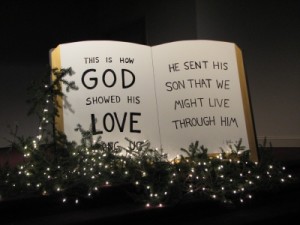 THIS IS HOW
GOD
SHOWED HIS
LOVE
HE SENT HIS
SON THAT WE
MIGHT LIVE
THROUGH HIM